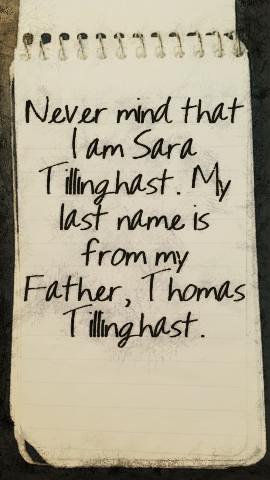 Never mind that
I am Sara
Tillinghast. My
last name is
from my
Father, Thomas
Tillinghast.